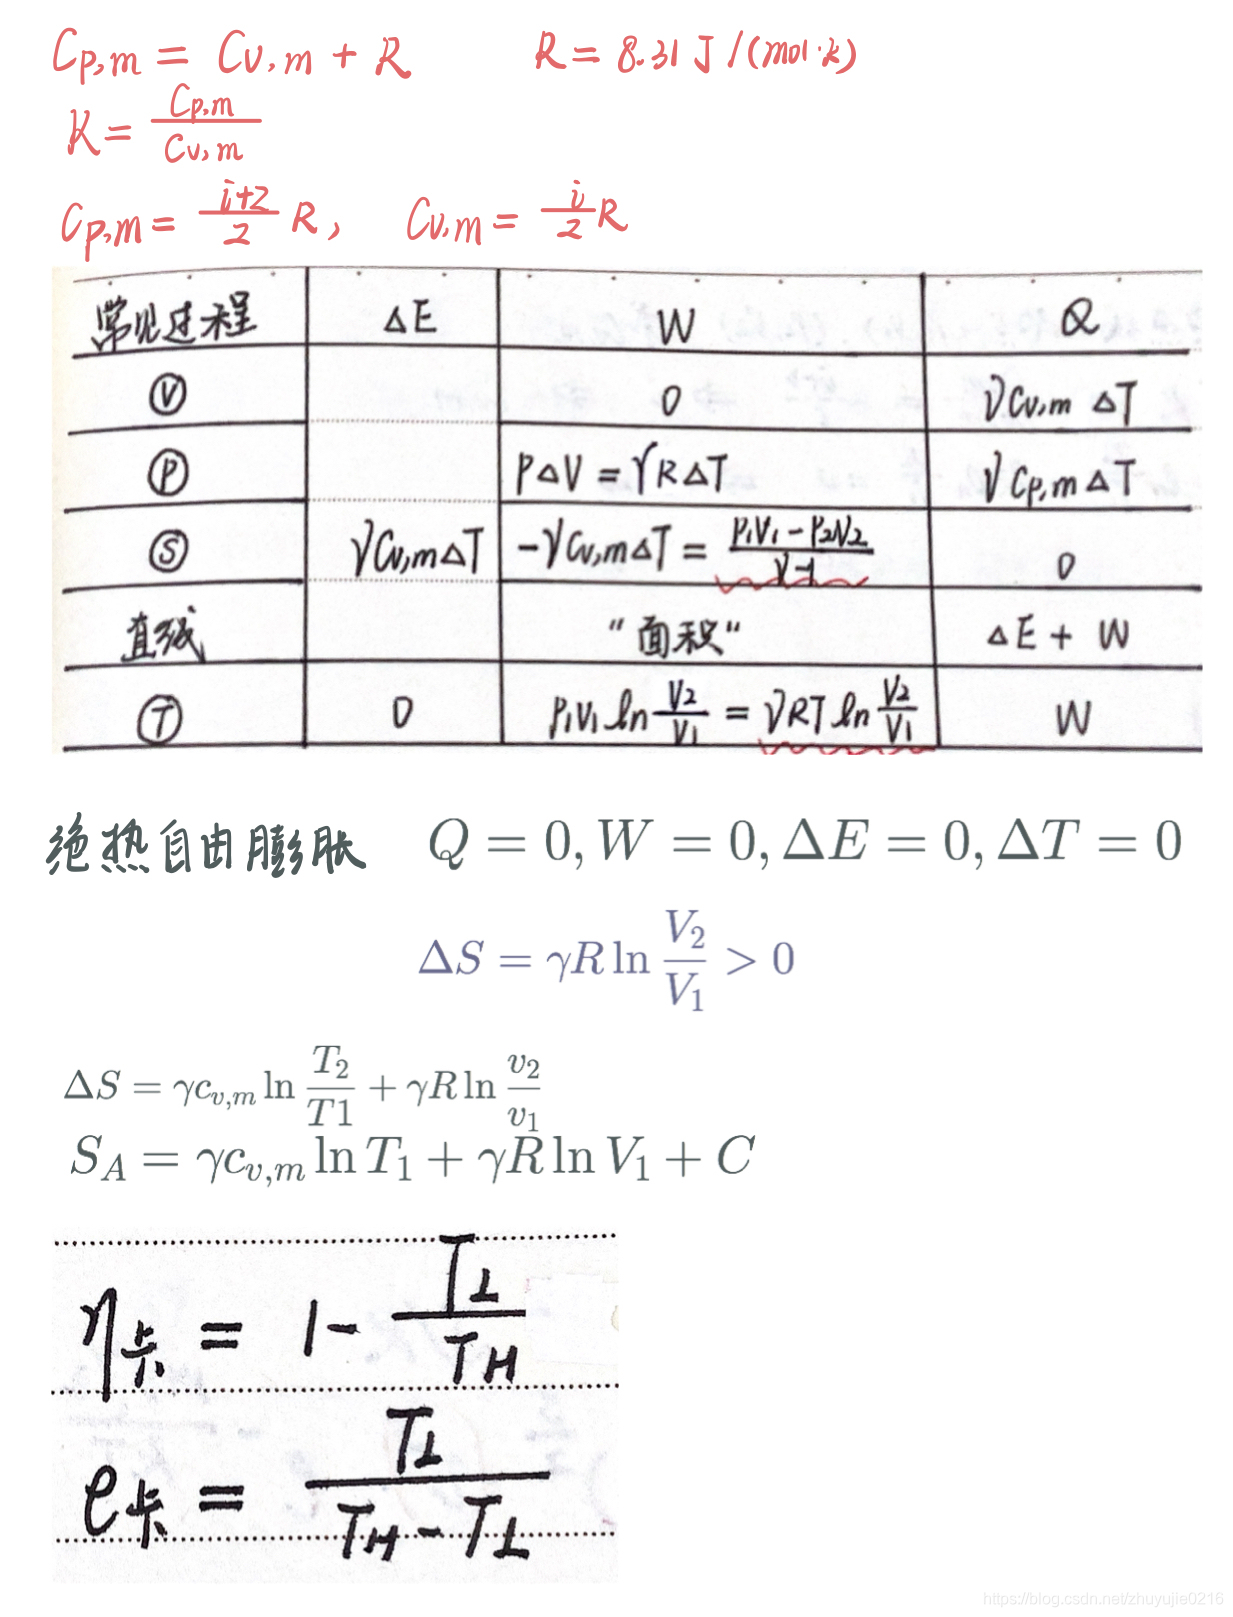 C_{p,m} = C_{v,m} + R    R = 8.31 J/(mol·k)
K = \frac{C_{p,m}}{C_{v,m}}
C_{p,m} = \frac{i+2}{2} R,    C_{v,m} = \frac{i}{2} R
常见过程    ΔE    W    Q
Ⓥ    0    νC_{v,m} ΔT
Ⓟ    PΔV = γRΔT    νC_{p,m} ΔT
Ⓢ    νC_{v,m}ΔT    -νC_{v,m}ΔT = \frac{P_1V_1 - P_2V_2}{γ-1}    0
直线    "面积"    ΔE + W
Ⓣ    0    P_1V_1 ln\frac{V_2}{V_1} = νRT ln\frac{V_2}{V_1}    W
绝热自由膨胀    Q = 0, W = 0, ΔE = 0, ΔT = 0
ΔS = γR ln\frac{V_2}{V_1} > 0
ΔS = γc_{v,m} ln\frac{T_2}{T1} + γR ln\frac{v_2}{v_1}
S_A = γc_{v,m} ln T_1 + γR ln V_1 + C
η_卡 = 1 - \frac{T_L}{T_H}
e_卡 = \frac{T_L}{T_H - T_L}
https://blog.csdn.net/zhuyujie0216